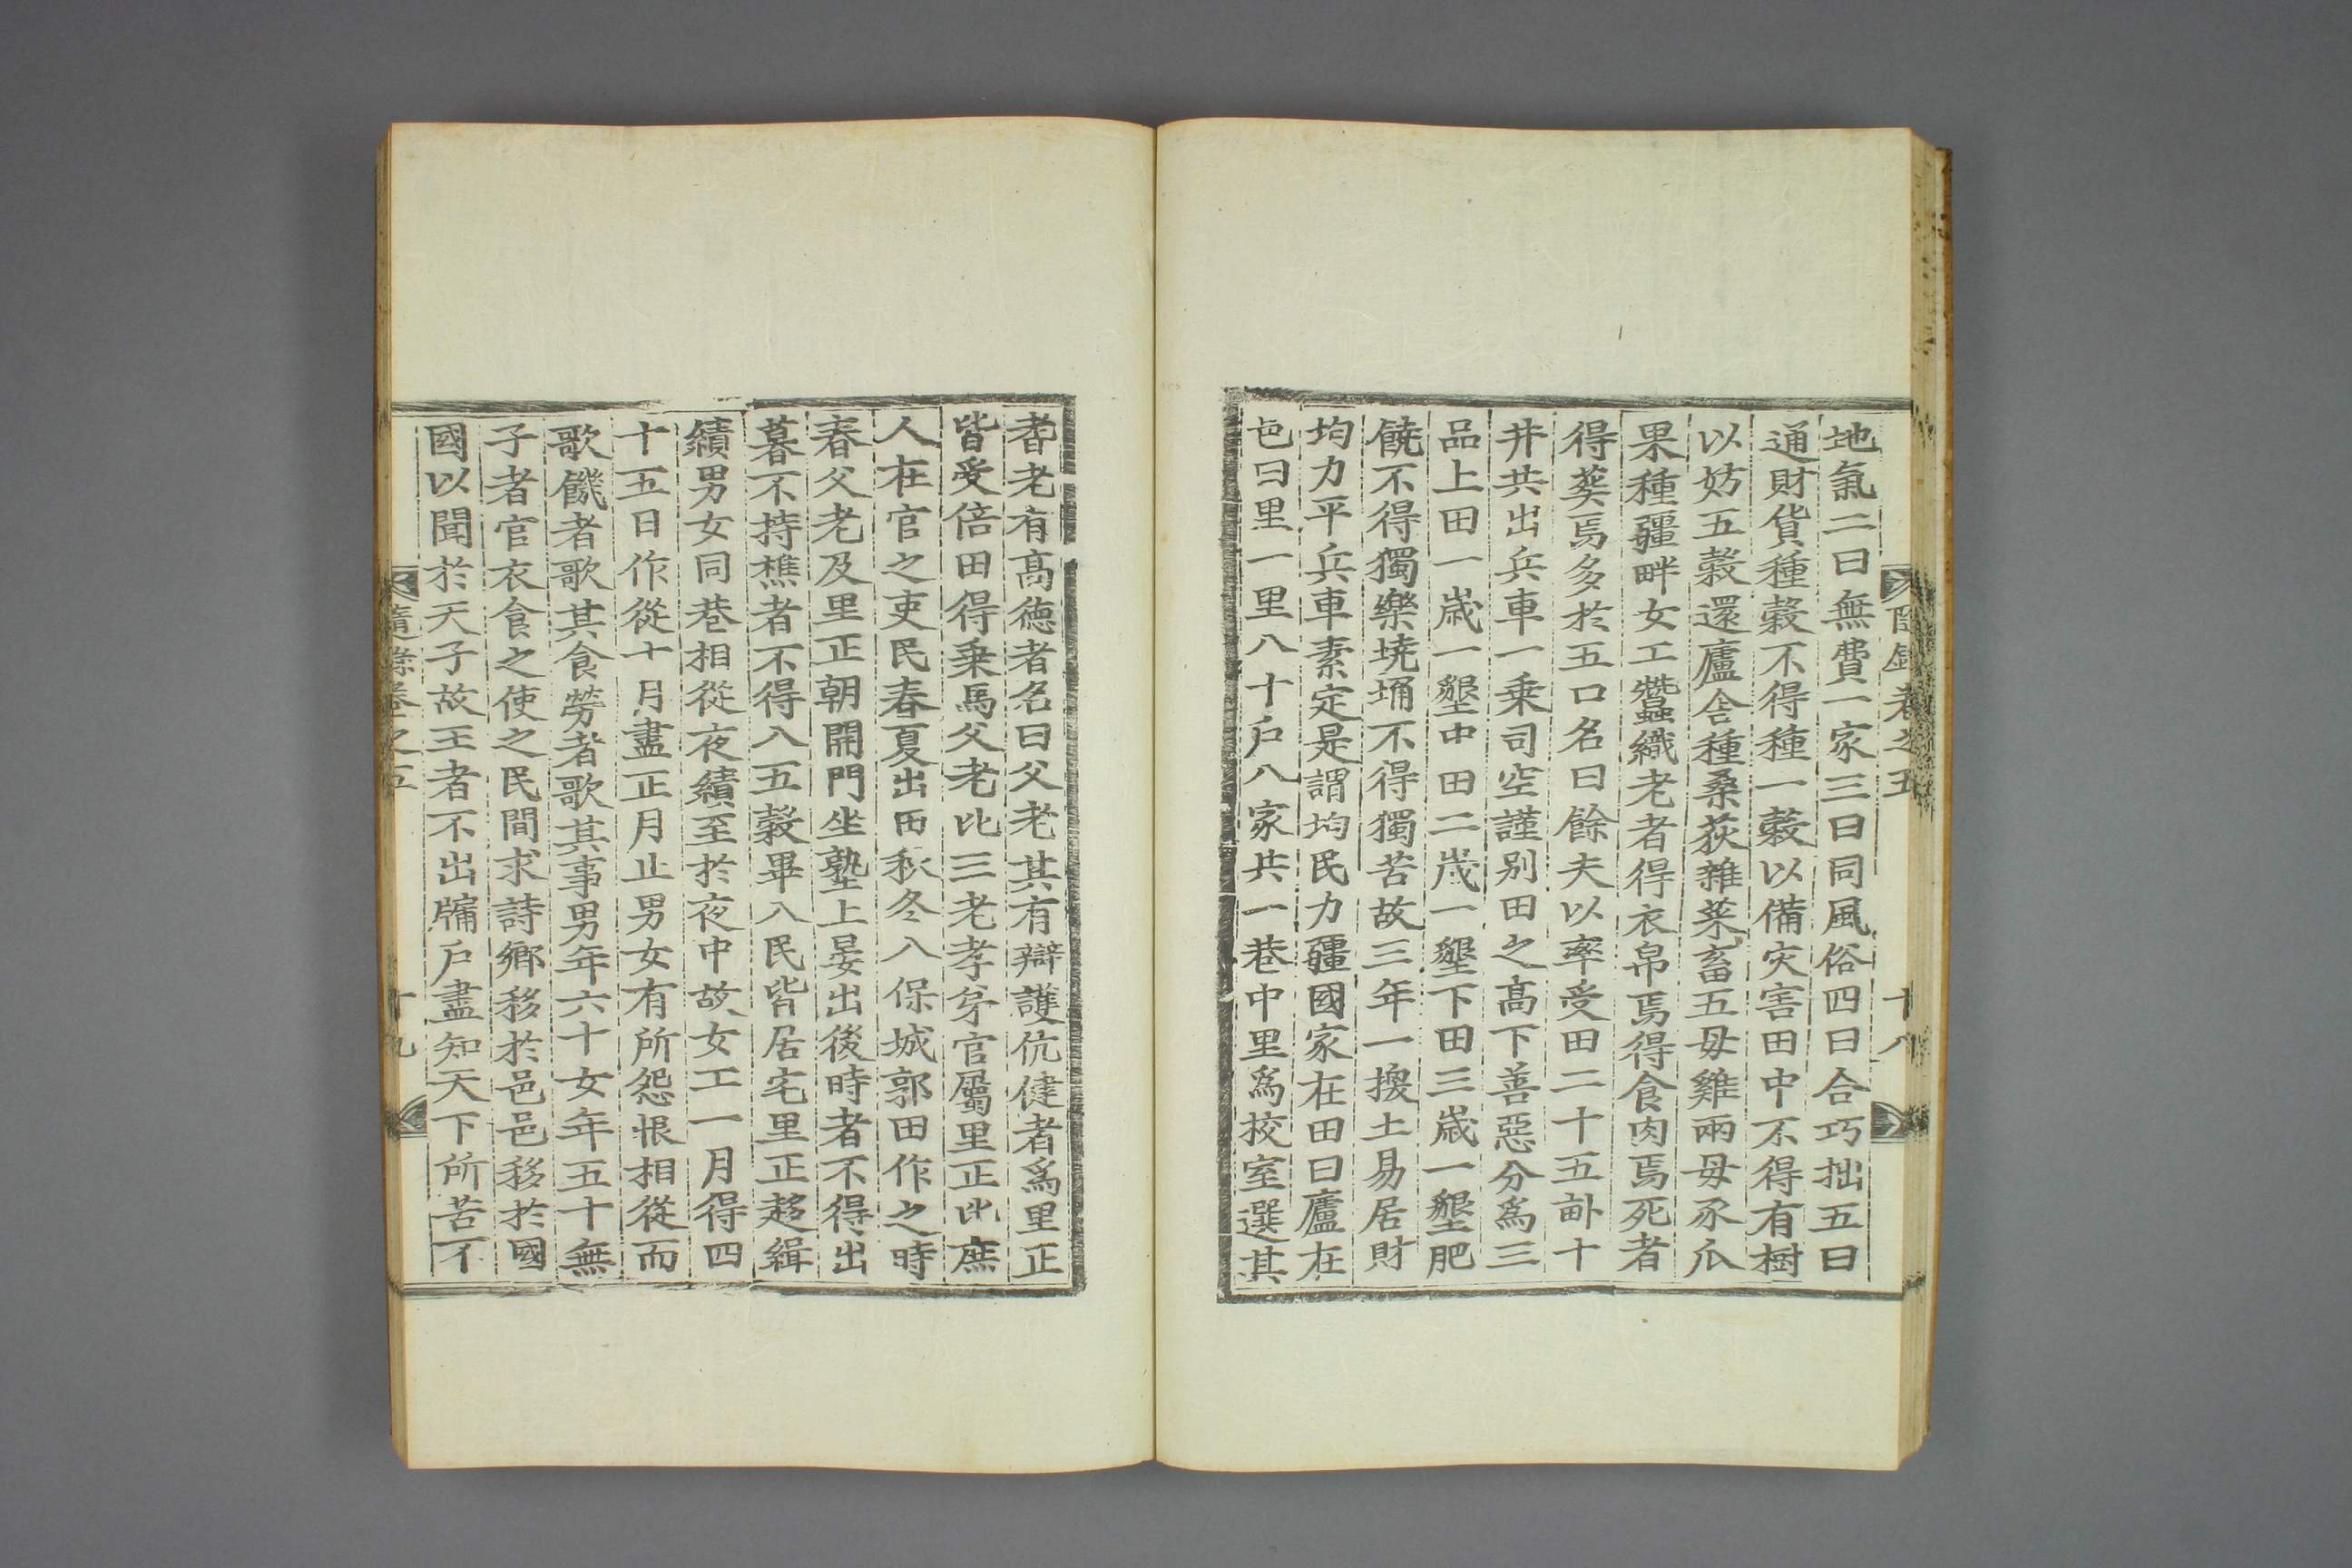 地氣二曰無費一家三曰同風俗四曰合巧拙五曰
通財貨種穀不得種一穀以備灾害田中不得有樹
以妨五穀還廬舍種桑荻雜菜畜五母雞兩母豕瓜
果種疆畔女工蠶織老者得衣帛焉得食肉焉死者
得葬焉多於五口名曰餘夫以率受田二十五畝十
井共出兵車一乗司空謹别田之高下善惡分爲三
品上田一歲一墾中田二歲一墾下田三歲一墾肥
饒不得獨樂墝埆不得獨苦故三年一換土易居財
均力平兵車素定是謂均民力疆國家在田曰廬在
邑曰里一里八十戶八家共一巷中里爲校室選其
耆老有高德者名曰父老其有辯護伉健者爲里正
皆受倍田得乗馬父老比三老孝弟官屬里正比庶
人在官之吏民春夏出田秋冬入保城郭田作之時
春父老及里正朝開門坐塾上晏出後時者不得出
暮不持樵者不得入五穀畢入民皆居宅里正趨緝
績男女同巷相從夜績至於夜中故女工一月得四
十五日作從十月盡正月止男女有所怨恨相從而
歌饑者歌其食勞者歌其事男年六十女年五十無
子者官衣食之使之民間求詩鄉移於邑邑移於國
國以聞於天子故王者不出牖戶盡知天下所苦不
隨錄卷之五 十九